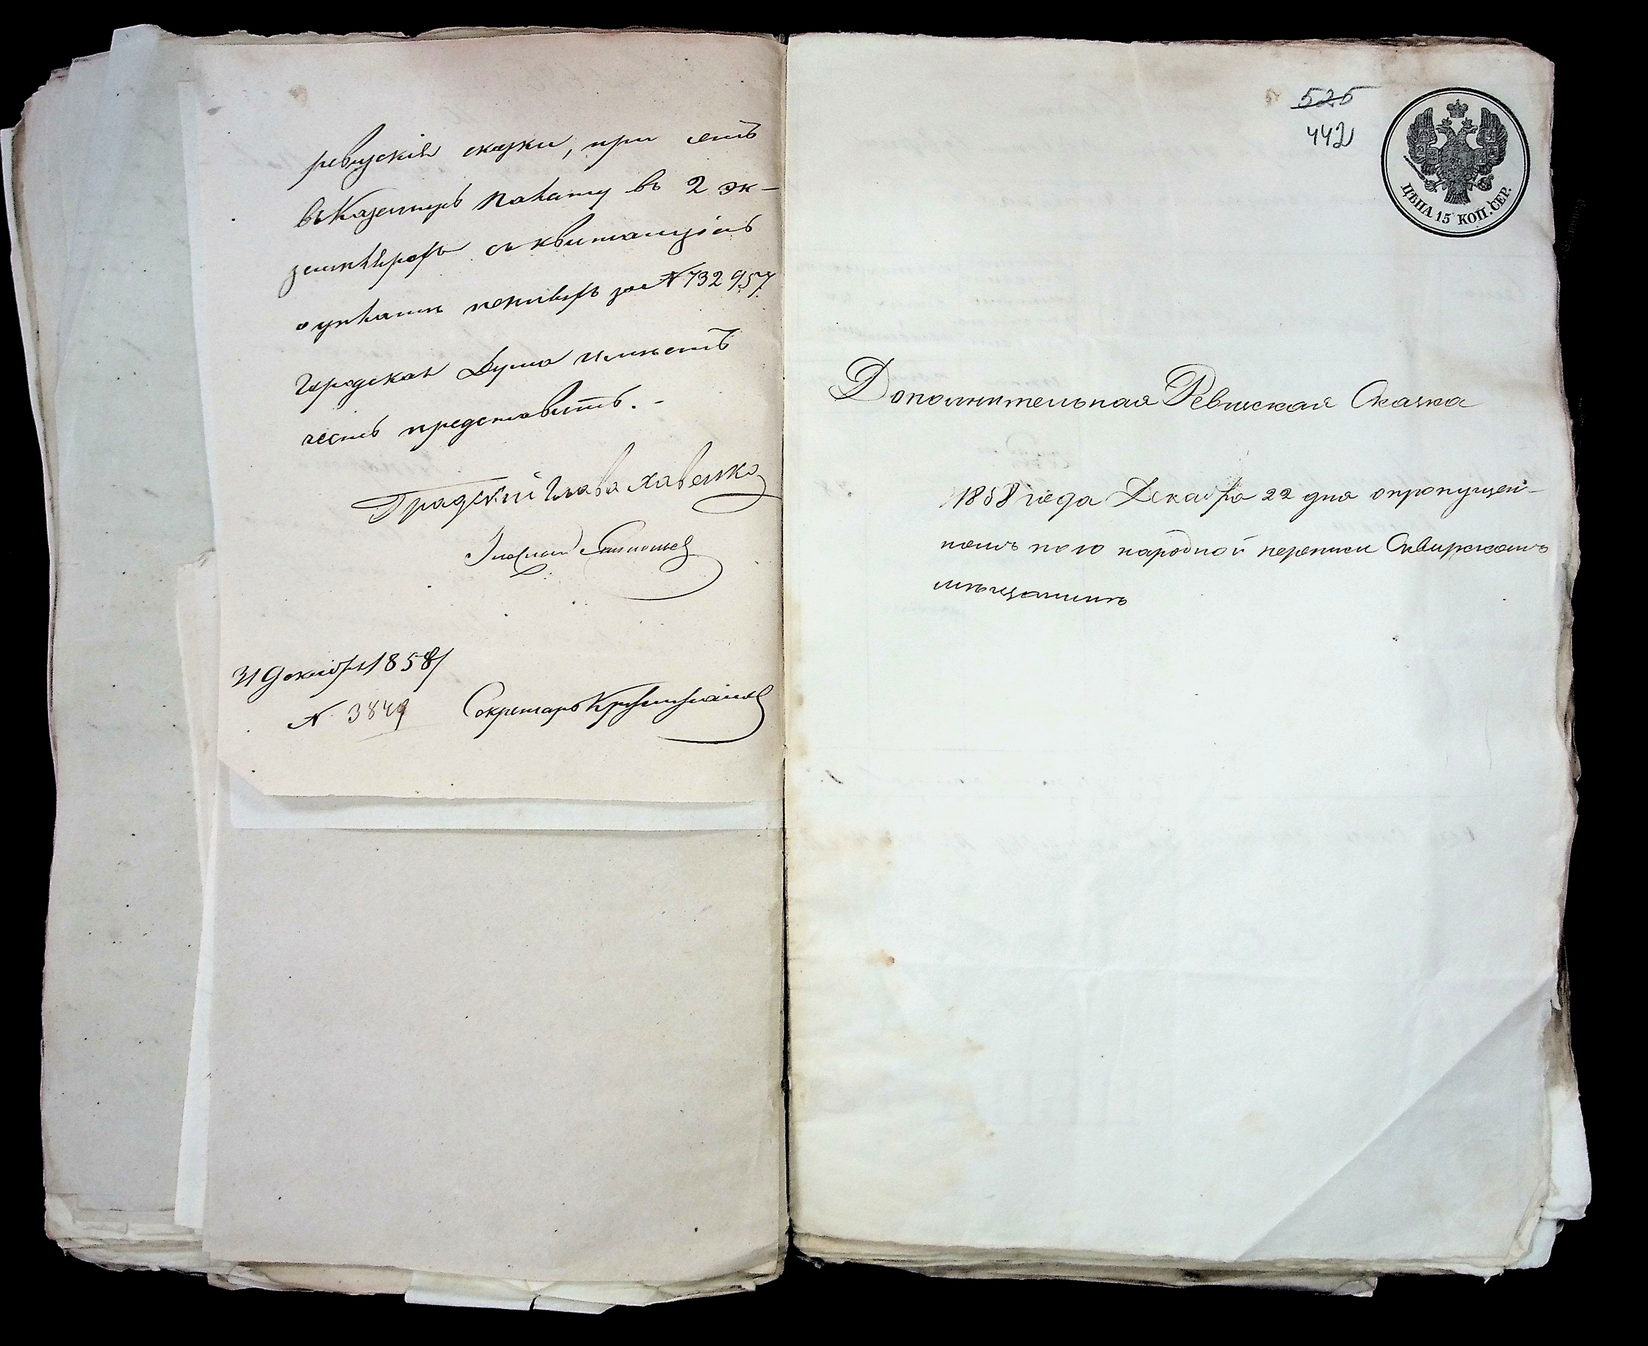 ревизскія сказки, при семъ
въ Казенную Палату въ 2 эк-
земплярахъ съ квитанціею
о уплатѣ пени за № 732957
Городская Дума имѣетъ
честь представить. -
Градскій Глава
31 Декабря 1858 г
№ 3849 Секретарь
525
442
ЦѢНА 15 КОП. СЕР.
Дополнительная Ревизская Сказка
1858 года Декабря 22 дня о пропущен-
номъ по 10 народной переписи Сквирскомъ
мѣщанинѣ